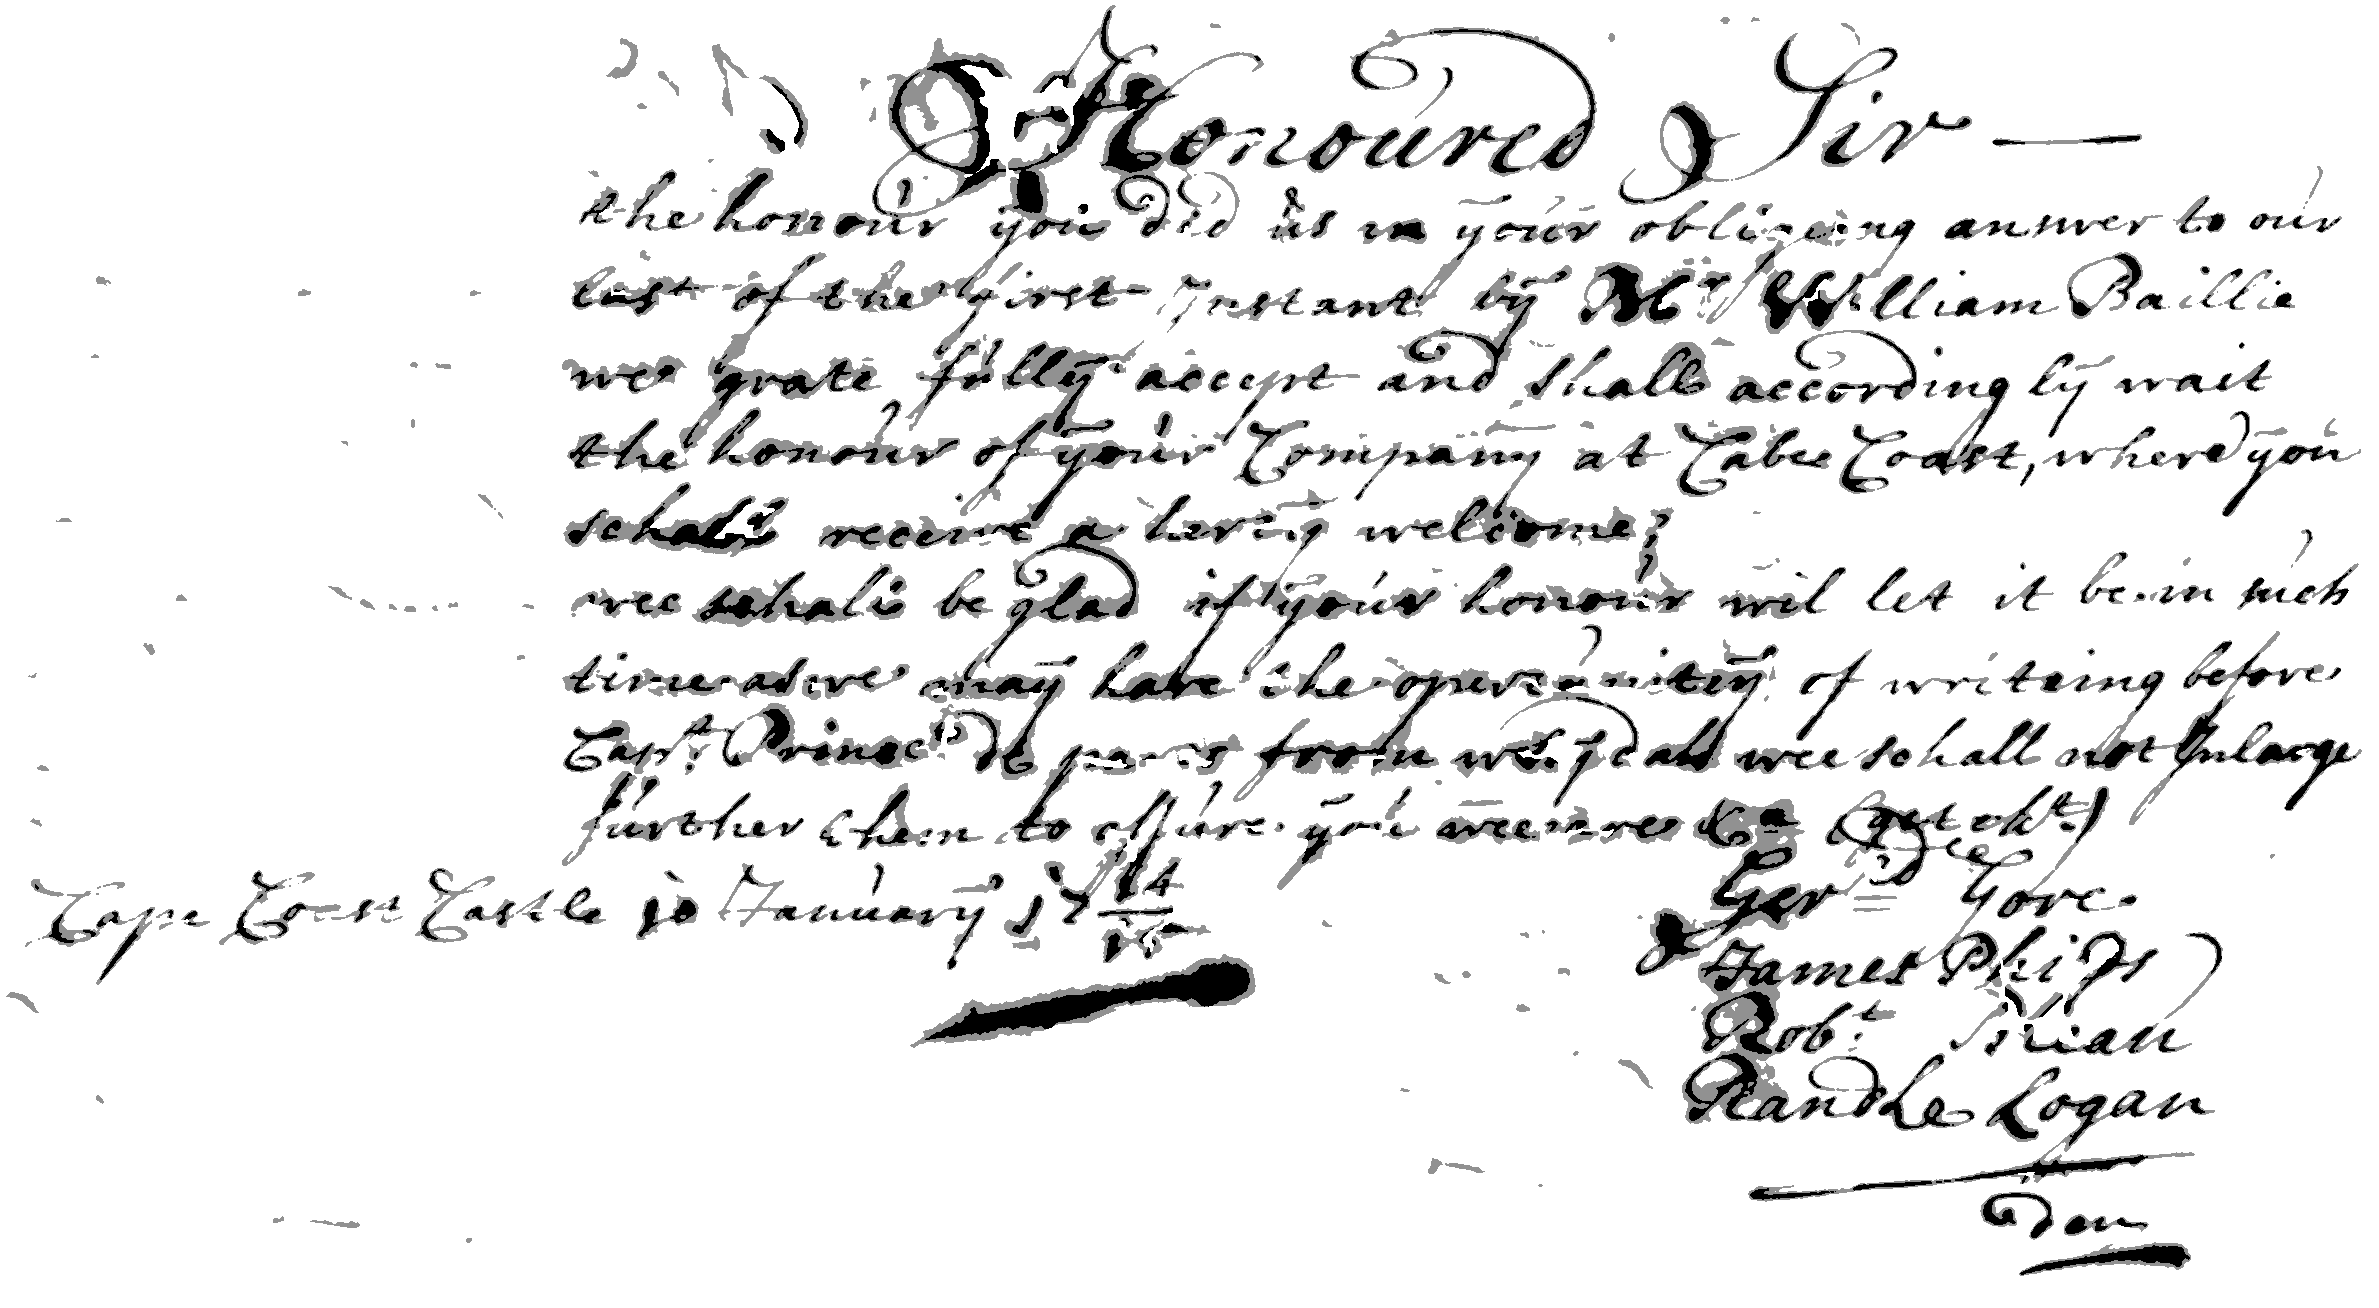 Honoured Sir —
the honour you did us in your obligeing answer to our
last of the first Instant by Mr William Baillie
wee grate fully accept and shall according ly wait
the honour of your Company at Cabe Coast, where you
schall receive a herty welcome;
wee schall be glad if your honour wil let it be in such
time as wee may have the opertunitey of writeing before
Capt. Prince de parts from wch. wee schall not Inlarge
further them to assure you wee are &a (get okt.)
Gerrd Gore
James Phips
Robt.
Randle Logan
Cape Coast Castle 10 January 17 14/15